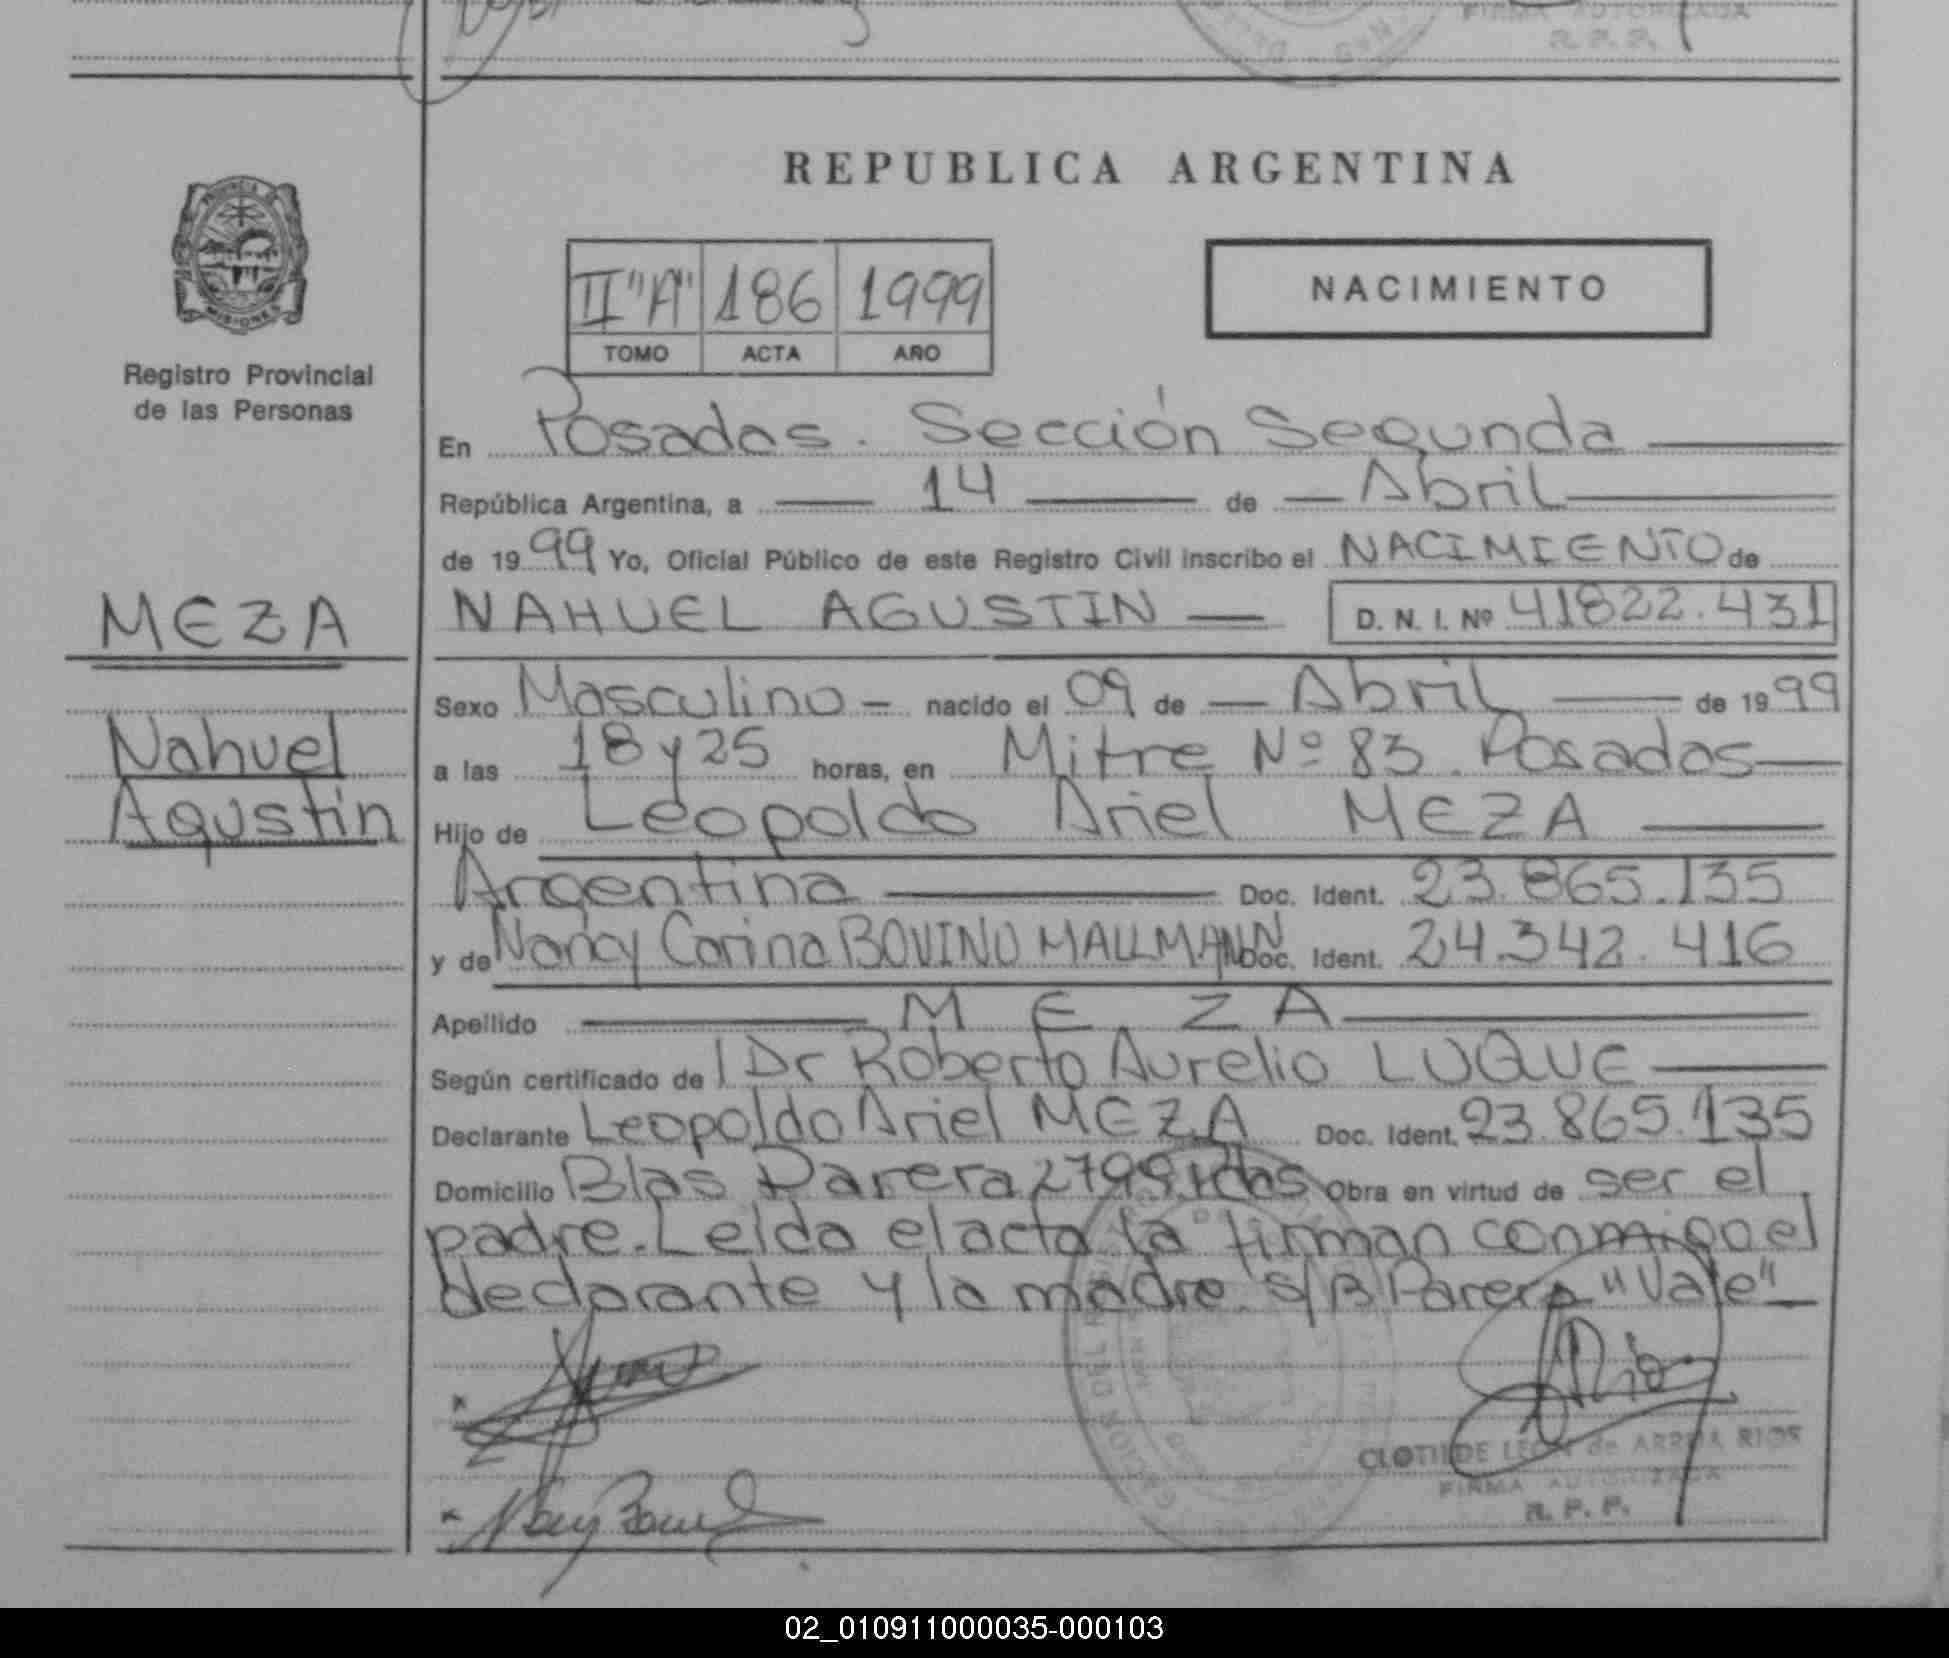 FIRMA AUTORIZADA
R. P. P.
REPUBLICA ARGENTINA
II "A" 186 1999
TOMO ACTA AÑO
NACIMIENTO
MISIONES
Registro Provincial
de las Personas
En Posadas. Sección Segunda
República Argentina, a 14 de Abril
de 1999 Yo, Oficial Público de este Registro Civil inscribo el NACIMIENTO de
MEZA
NAHUEL AGUSTIN D. N. I. Nº 41822.431
Sexo Masculino - nacido el 09 de Abril de 1999
Nahuel
a las 18 y 25 horas, en Mitre Nº 83. Posadas
Agustín
Hijo de Leopoldo Ariel MEZA
Argentina Doc. Ident. 23.865.135
y de Nancy Carina BOVINO MALLMANN Doc. Ident. 24.342.416
Apellido MEZA
Según certificado de Dr Roberto Aurelio LUQUE
Declarante Leopoldo Ariel MEZA Doc. Ident. 23.865.135
Domicilio Blas Parera 2799 Obra en virtud de ser el
padre. Leída el acta la firman conmigo el
declarante y la madre. s/B Parera "Vale"
CLOTILDE LEON de ARROA RIOS
FIRMA AUTORIZADA
R. P. P.
02_010911000035-000103